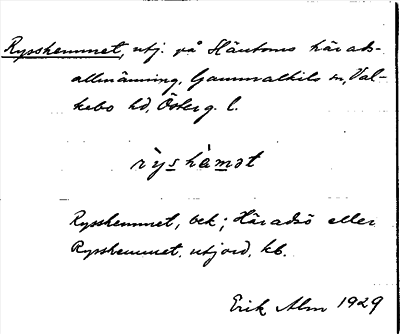 Rysshemmet, utj. på Häntorns härads-
allmänning, Gammalkils sn, Val-
kebo hd, Österg. l.
rỳshàmət
Rysshemmet, bek; Häradsö eller
Rysshemmet, utjord, kb.
Erik Alm 1929